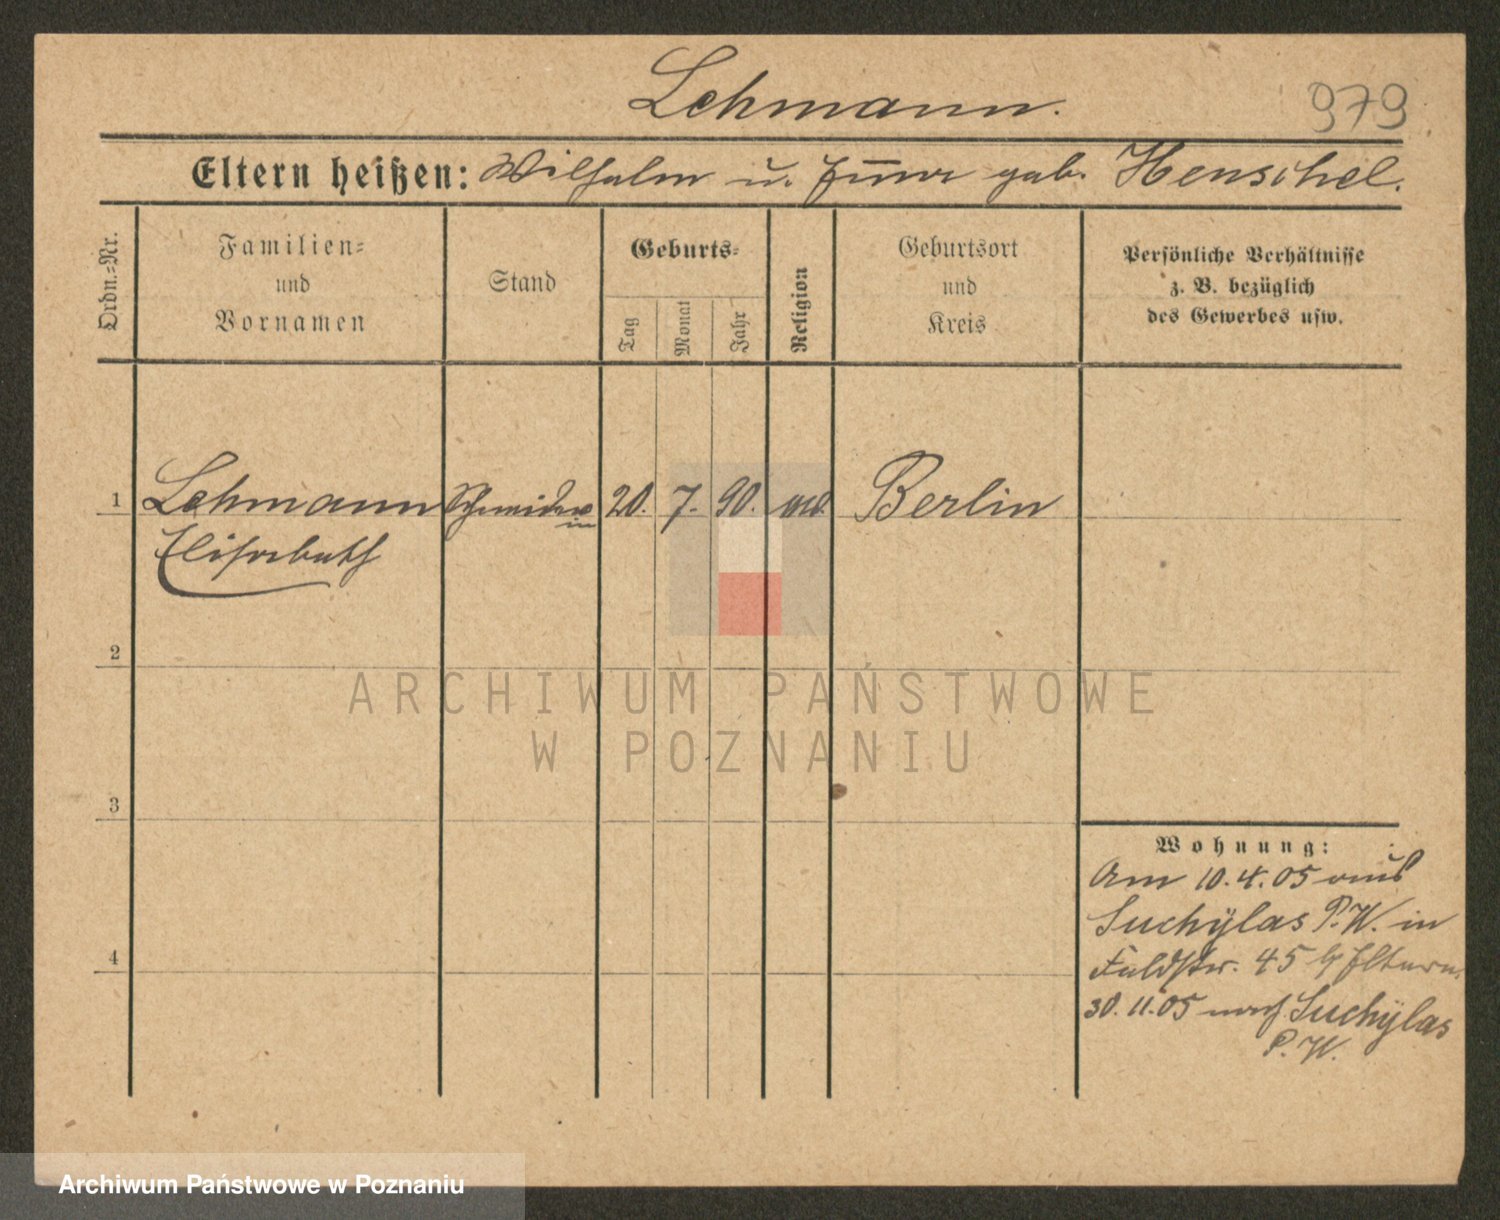 Lehmann.
979
Eltern heißen: Wilhelm u. geb. Henschel.
Ordn.=Nr.
Familien=
und
Vornamen
Stand
Geburts=
Tag
Monat
Jahr
Religion
Geburtsort
und
Kreis
Persönliche Verhältnisse
z. B. bezüglich
des Gewerbes usw.
1 Lehmann Schneider 20. 7. 90. Berlin
in
Elisabeth
2
3
4
Wohnung:
Am 10.4.05 aus
Suchylas P.W. in
Feldstr. 45 b/ Eltern.
30.11.05 nach Suchylas
P.W.
ARCHIWUM PAŃSTWOWE
W POZNANIU
Archiwum Państwowe w Poznaniu